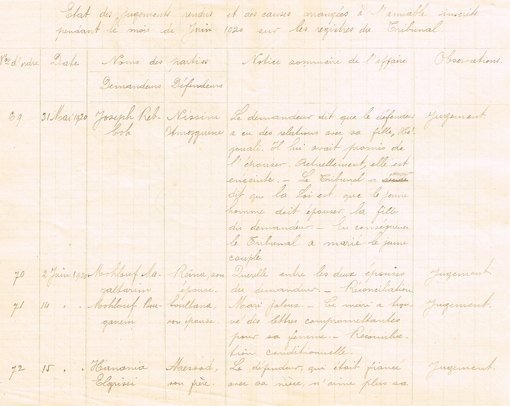 Etat des jugements rendus et des causes arrangées à l'amiable inscrits
pendant le mois de Juin 1920 sur les registres du Tribunal.
Nos d'ordre Date Noms des parties Notice sommaire de l'affaire Observations.
Demandeurs Défendeurs
69 31 Mai 1920 Joseph Nissim Le demandeur dit que le défendeur jugement
a eu des relations avec sa fille,
Il lui avait promis de
l'épouser. Actuellement, elle est
enceinte. — Le Tribunal a
dit que la Loi est que le jeune
homme doit épouser la fille
du demandeur — En conséquence
le Tribunal a marié le jeune
couple.
70 2 Juin 1920 Makhlouf Reine, son Querelle entre les deux épouses jugement.
épouse. du demandeur. — Réconciliation
71 14 " " Makhlouf Soultana, Mari jaloux — Le mari a trou- jugement.
son épouse. vé des lettres compromettantes
pour sa femme — Réconcilia-
tion conditionnelle.
72 15 " " Hanania Messod, Le défendeur, qui était fiancé jugement.
son frère. avec sa nièce, n'aime plus sa